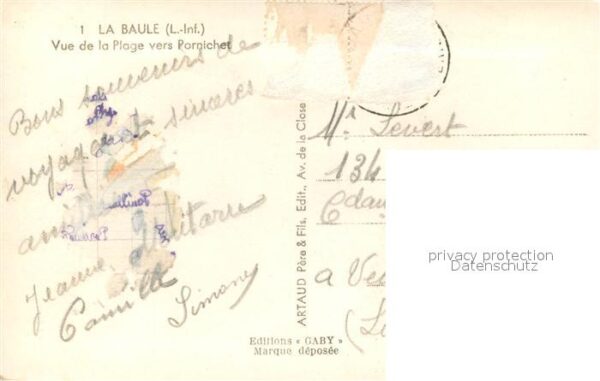 1 LA BAULE (L.-Inf.)
Vue de la Plage vers Pornichet
Bons souvenirs de
voyage et sincères
Jeanne,
Camille
Simone
ARTAUD Père & Fils, Edit., Av. de la Close
Mr Levert
134
a Ve
Editions « GABY »
Marque déposée
privacy protection
Datenschutz